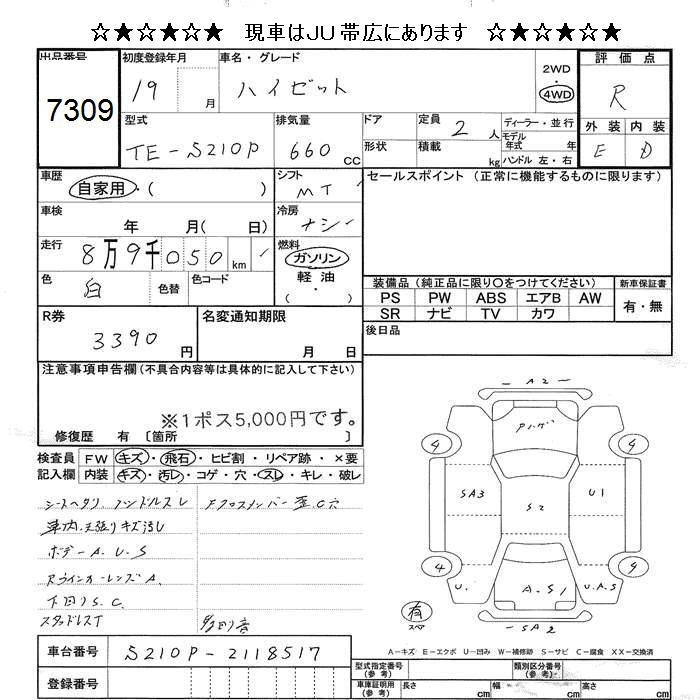 ☆★☆★☆★ 現車はJU帯広にあります ☆★☆★☆★
出品番号
7309
初度登録年月
19 月
車名・グレード
ハイゼット
2WD
4WD
評価点
R
外装 内装
E D
型式
TE-S210P
排気量
660 CC
ドア
形状
定員 2 人
積載 kg
ディーラー・並行
モデル年式 年
ハンドル 左・右
車歴
自家用・( )
シフト
MT
セールスポイント (正常に機能するものに限ります)
車検
年 月( 日)
冷房
ナシ
走行
8万9千050 km
燃料
ガソリン
軽油
・( )
色
白
色替
色コード
装備品 (純正品に限り○をつけてください)
新車保証書
PS PW ABS エアB AW
SR ナビ TV カワ
有・無
R券
3390 円
名変通知期限
月 日
後日品
注意事項申告欄(不具合内容等は具体的に記入して下さい)
※1ポス5,000円です。
修復歴 有 〔箇所 〕
検査員記入欄
FW キズ・飛石・ヒビ割・リペア跡・×要
内装 キズ・汚レ・コゲ・穴・スレ・キレ・破レ
シートヘタリ ハンドルスレ
Fクロスメンバー歪.C穴
車内.天張りキズ汚レ
ボデーA.U.S
RウインカーレンズA.
下回りS.C.
スタッドレスT
A2
4
9
SA3
S2
U1
4
9
U.
A.S1
U.A.S
SA2
有
スペア
A-キズ E-エクボ U-凹み W-補修跡 S-サビ C-腐食 XX-交換済
車台番号
S210P-2118517
登録番号
型式指定番号(参考)
類別区分番号(参考)
車庫証明用(参考)
長さ cm
幅 cm
高さ cm